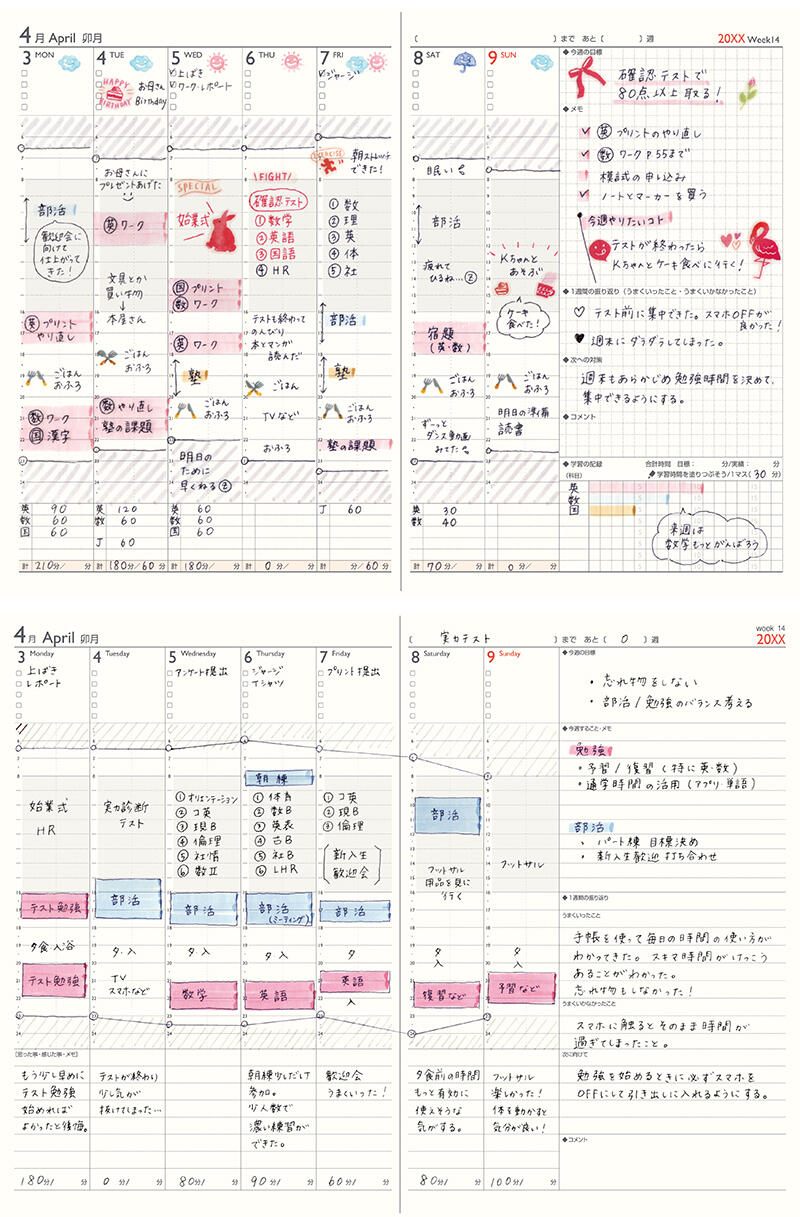 4月 April 卯月
3 MON
4 TUE
5 WED
6 THU
7 FRI
HAPPY BIRTHDAY
お母さん
Birthday
上ばき
ワーク・レポート
ジャージ
部活
歓迎会に
向けて
仕上がって
きた!
英 プリント
やり直し
ごはん
おふろ
数 ワーク
国 漢字
お母さんに
プレゼントあげた
英 ワーク
文具とか
買い物
↓
本屋さん
ごはん
おふろ
数 やり直し
塾の課題
SPECIAL
始業式
国 プリント
数 ワーク
英 ワーク
塾
ごはん
おふろ
明日の
ために
早くねる
FIGHT
確認テスト
①数学
②英語
③国語
④HR
テストも終わって
のんびり
本とマンガ
読んだ
ごはん
TVなど
おふろ
EXERCISE
朝ストレッチ
できた!
①数
②理
③英
④体
⑤社
部活
塾
ごはん
おふろ
塾の課題
英 90
数 60
国 60
英 120
数 60
J 60
英 60
数 60
国 60
J 60
計 210分/ 分
計 180分/60分
計 180分/ 分
計 0分/ 分
計 分/60分
〔 〕まで あと( )週
20XX Week14
8 SAT
9 SUN
眠い
部活
疲れて
ひるね…
宿題
(英・数)
ごはん
おふろ
ずーっと
ダンス動画
みてた
Kちゃんと
あそぶ
ケーキ
食べた!
ごはん
おふろ
明日の準備
読書
英 30
数 40
計 70分/ 分
計 0分/ 分
◆今週の目標
確認テストで
80点以上取る!
◆メモ
英 プリントのやり直し
数 ワーク P.55まで
模試の申し込み
ノートとマーカーを買う
今週やりたいコト
テストが終わったら
Kちゃんとケーキ食べに行く!
◆1週間の振り返り(うまくいったこと・うまくいかなかったこと)
テスト前に集中できた。スマホOFFが
良かった!
週末にダラダラしてしまった。
◆次への対策
週末もあらかじめ勉強時間を決めて、
集中できるようにする。
◆コメント
◆学習の記録 合計時間 目標: 分/実績: 分
(科目) 学習時間を塗りつぶそう/1マス(30分)
英
数
国
来週は
数学もっとがんばろう
4月 April 卯月
3 Monday
4 Tuesday
5 Wednesday
6 Thursday
7 Friday
上ばき
レポート
アンケート提出
ジャージ
Tシャツ
プリント提出
始業式
HR
テスト勉強
夕食・入浴
テスト勉強
実力診断
テスト
部活
夕・入
TV
スマホなど
①オリエンテーション
②コ英
③現B
④倫理
⑤社情
⑥数Ⅱ
部活
夕・入
数学
朝練
①体育
②数B
③英表
④古B
⑤社B
⑥LHR
部活
(ミーティング)
夕・入
英語
①コ英
②現B
③倫理
新入生
歓迎会
部活
夕
英語
入
[思った事・感じた事・メモ]
もう少し早めに
テスト勉強
始めれば
よかったと後悔。
テストが終わり
少し気が
抜けてしまった…
朝練少しだけ
参加。
少人数で
濃い練習が
できた。
歓迎会
うまくいった!
180分/ 分
0分/ 分
80分/ 分
90分/ 分
60分/ 分
〔 実力テスト 〕まで あと( 0 )週
week 14
20XX
8 Saturday
9 Sunday
部活
フットサル
用品を見に
行く
夕
入
復習など
フットサル
夕
入
予習など
夕食前の時間
もっと有効に
使えそうな
気がする。
フットサル
楽しかった!
体を動かすと
気分が良い!
80分/ 分
100分/ 分
◆今週の目標
・忘れ物をしない
・部活/勉強のバランス考える
◆今週すること・メモ
勉強
・予習/復習(特に英・数)
・通学時間の活用(アプリ・単語)
部活
・パート練 目標決め
・新入生歓迎 打ち合わせ
◆1週間の振り返り
うまくいったこと
手帳を使って毎日の時間の使い方が
わかってきた。スキマ時間がけっこう
あることがわかった。
忘れ物もしなかった!
うまくいかなかったこと
スマホに触るとそのまま時間が
過ぎてしまったこと。
次に向けて
勉強を始めるときに必ずスマホを
OFFにして引き出しに入れるようにする。
◆コメント